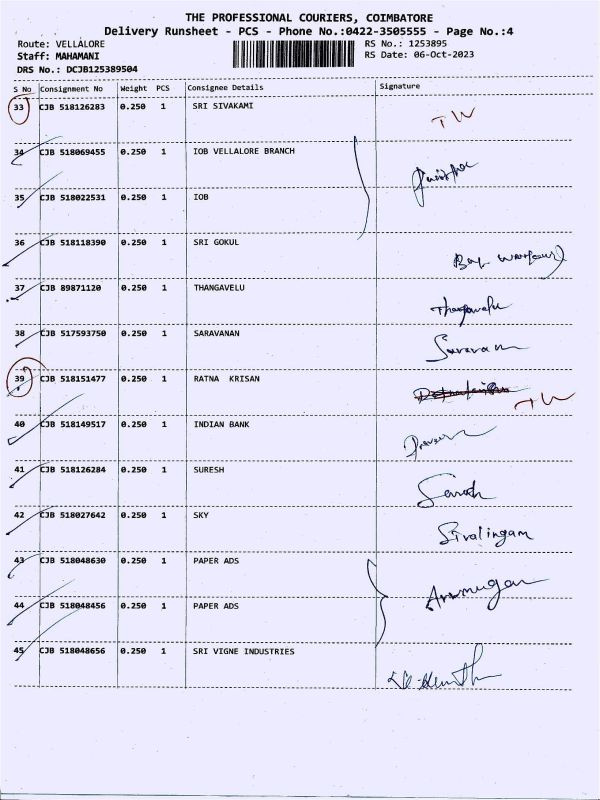 THE PROFESSIONAL COURIERS, COIMBATORE
Delivery Runsheet - PCS - Phone No.:0422-3505555 - Page No.:4
Route: VELLALORE RS No.: 1253895
Staff: MAHAMANI RS Date: 06-Oct-2023
DRS No.: DCJB125389504
S No Consignment No Weight PCS Consignee Details Signature
33 CJB 518126283 0.250 1 SRI SIVAKAMI TW
34 CJB 518069455 0.250 1 IOB VELLALORE BRANCH
35 CJB 518022531 0.250 1 IOB
36 CJB 518118390 0.250 1 SRI GOKUL
37 CJB 89871120 0.250 1 THANGAVELU Thangavelu
38 CJB 517593750 0.250 1 SARAVANAN
39 CJB 518151477 0.250 1 RATNA KRISAN TW
40 CJB 518149517 0.250 1 INDIAN BANK
41 CJB 518126284 0.250 1 SURESH
42 CJB 518027642 0.250 1 SKY Sivalingam
43 CJB 518048630 0.250 1 PAPER ADS
44 CJB 518048456 0.250 1 PAPER ADS
45 CJB 518048656 0.250 1 SRI VIGNE INDUSTRIES